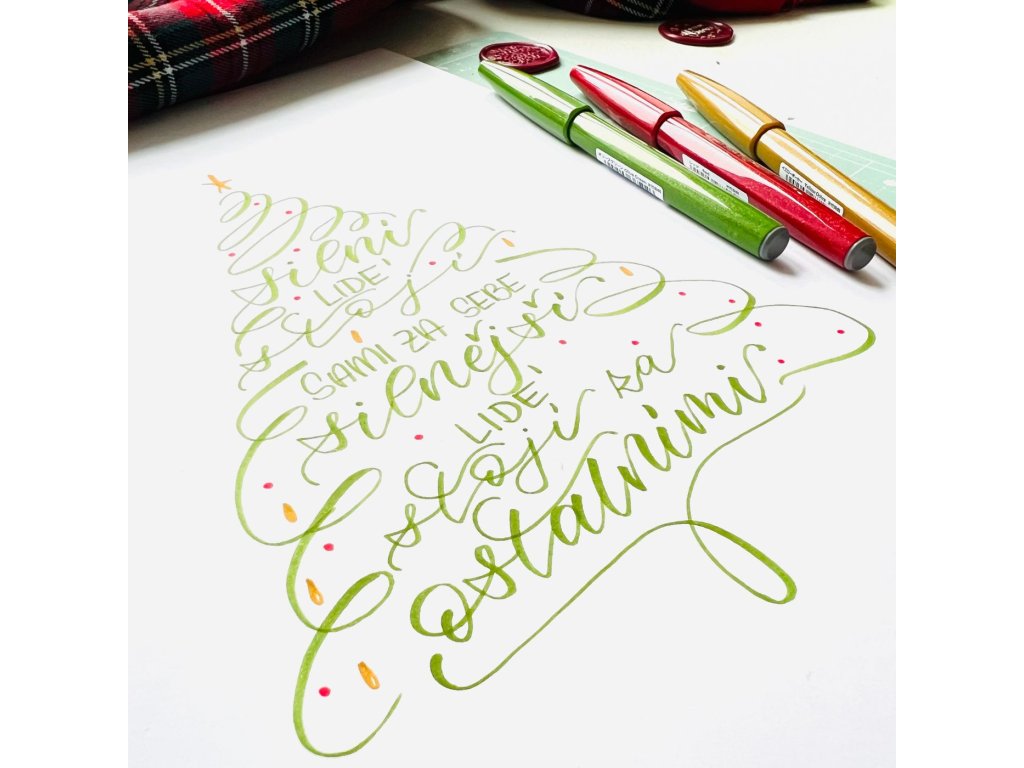 silní
LIDÉ
stojí
SAMI ZA SEBE
silnější
LIDÉ
stojí za
ostatními